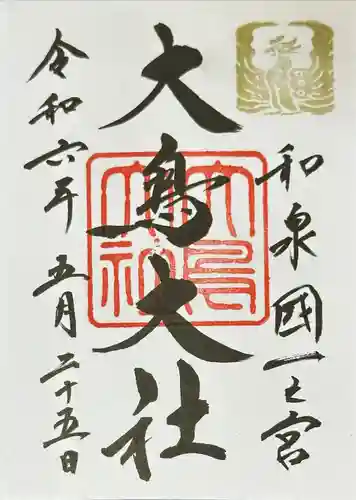 和泉國一之宮
大鳥大社
令和六年 五月 二十五日
大鳥大社